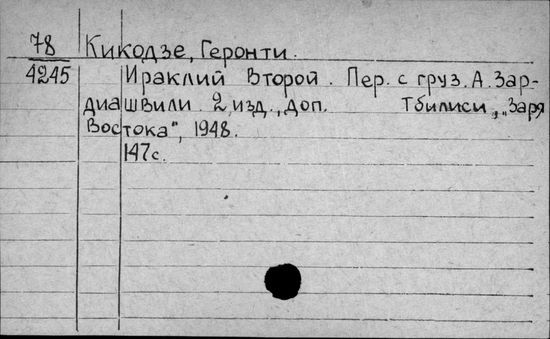 78 Кикодзе, Геронти.
4245 Ираклий Второй. Пер. с груз. А. Зар-
диашвили. 2 изд., доп. Тбилиси, „Заря
Востока", 1948.
147с.